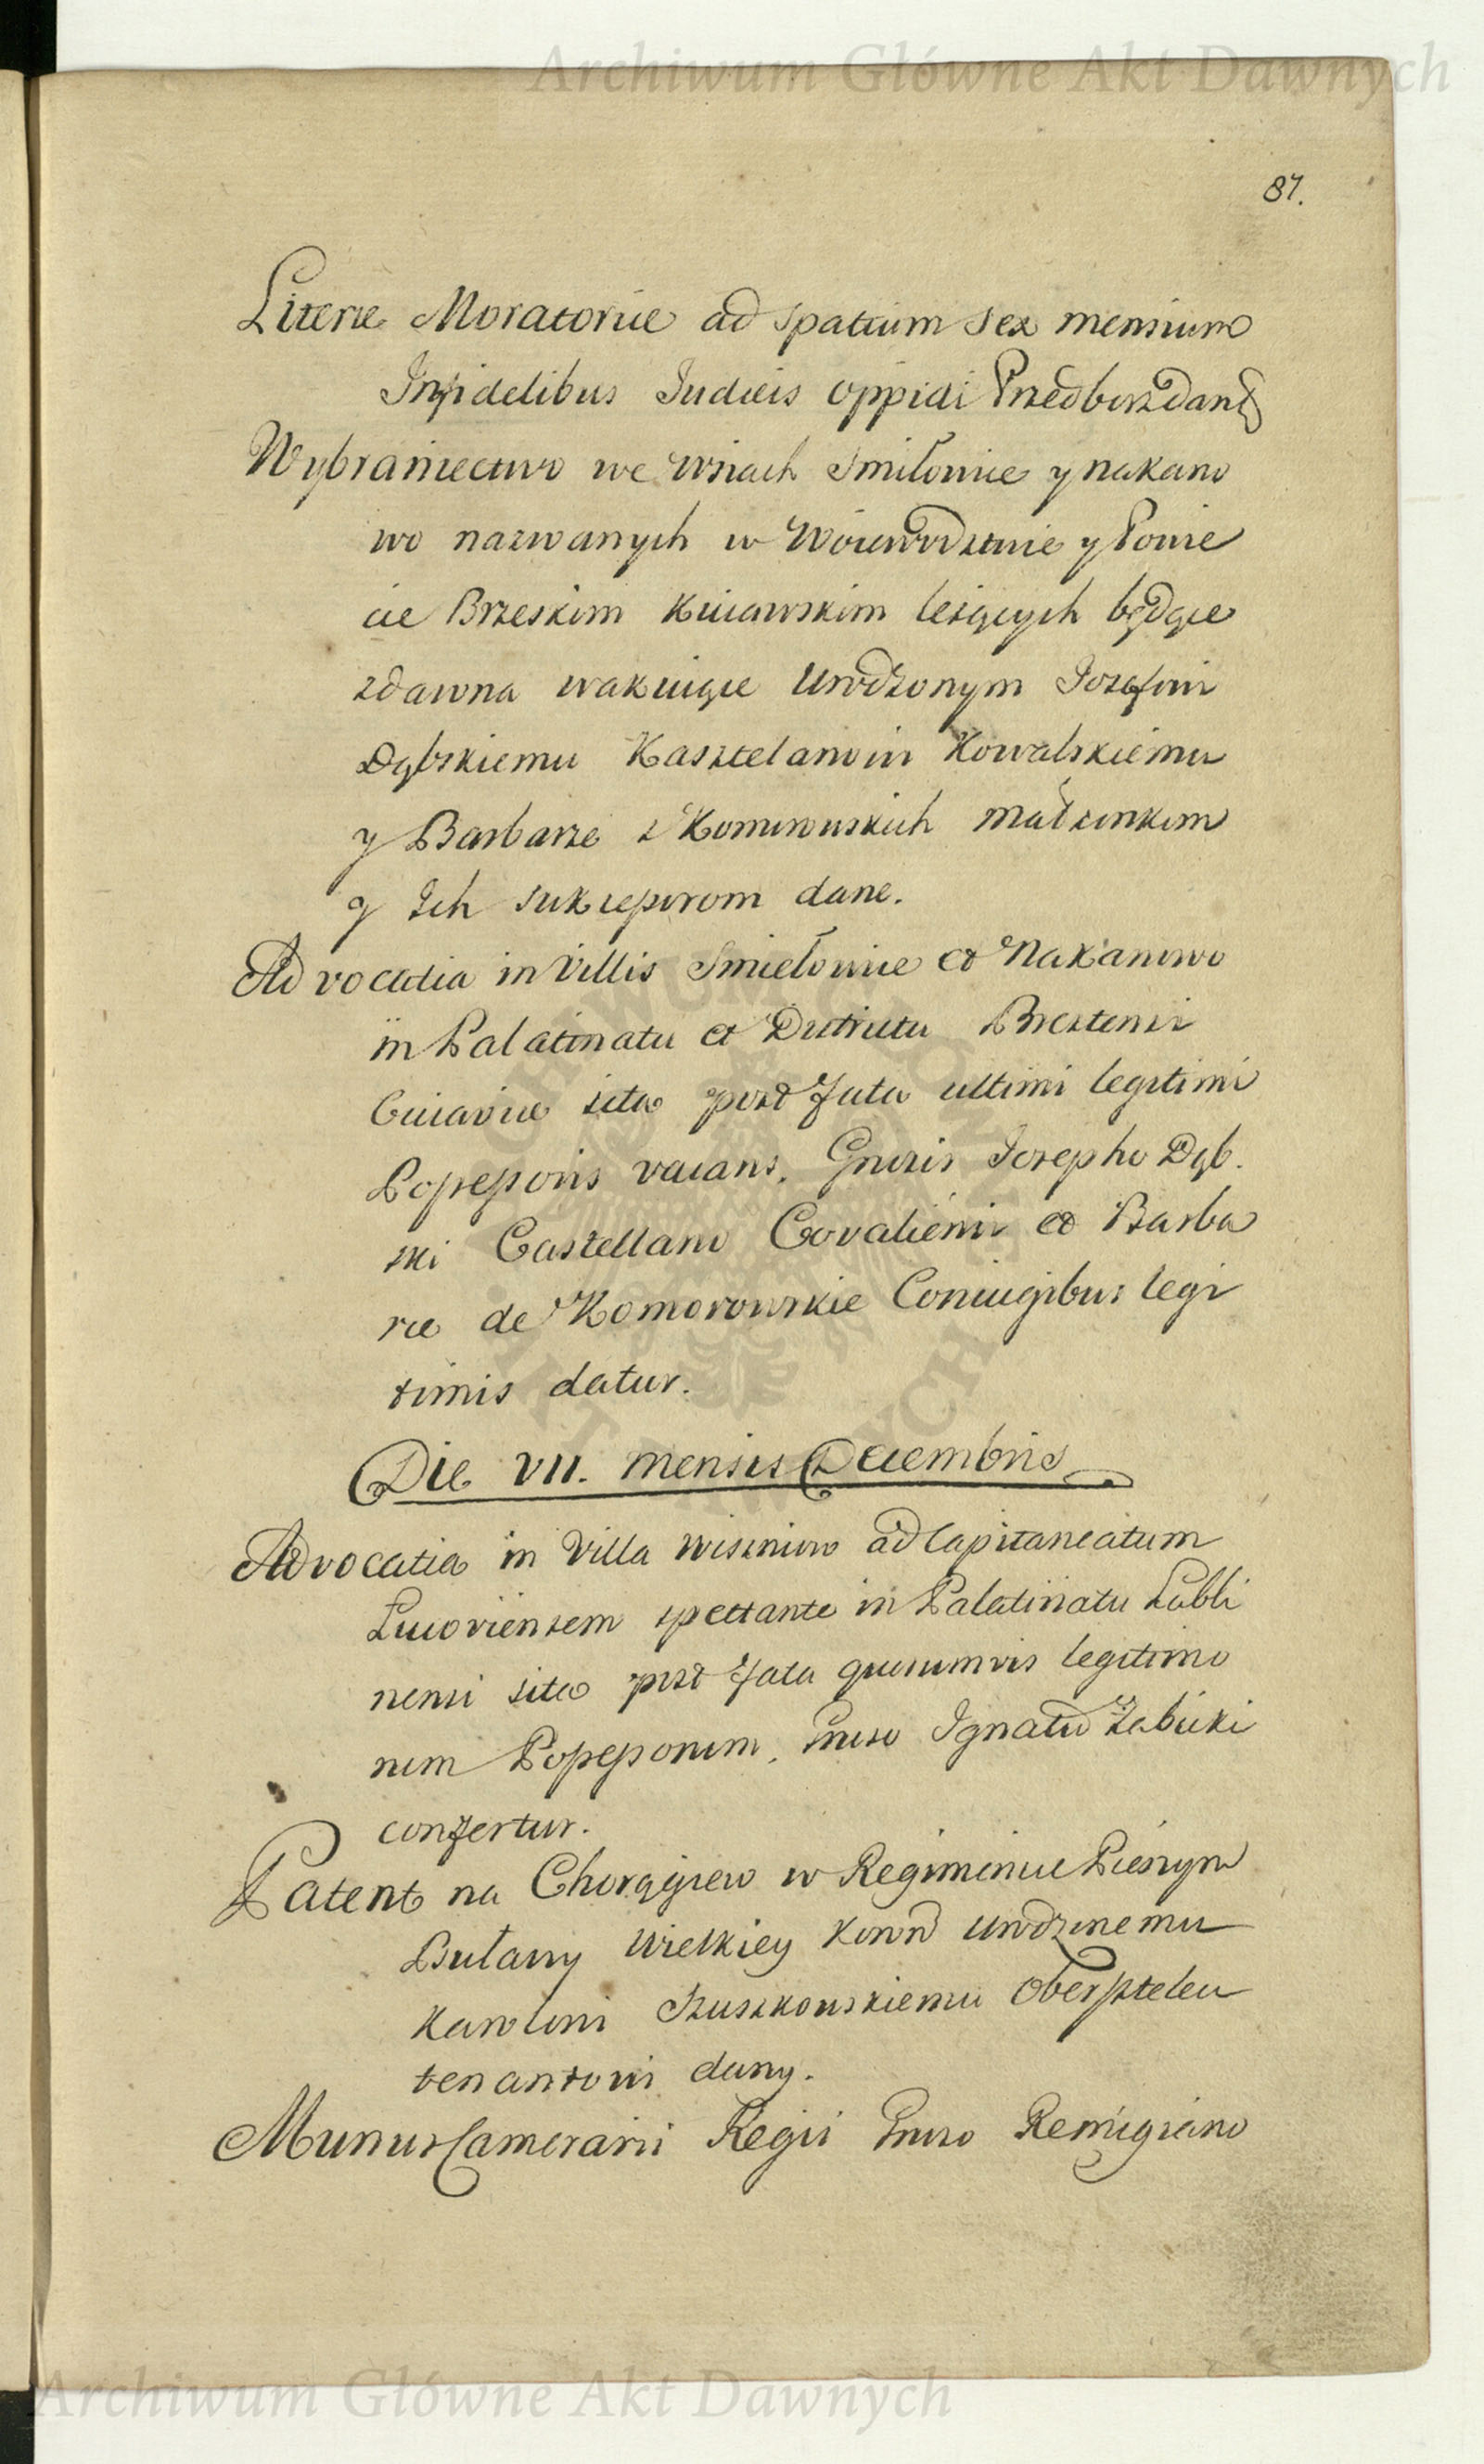 Archiwum Główne Akt Dawnych
87.
Literæ Moratoriæ ad spatium sex mensium
Infidelibus Iudæis oppidi
Wybraniectwo we wsiach Smiłowice y nakano
wo nazwanych w Woiewodztwie y Powie
cie Brzeskim Kuiawskim leżących będące
zdawna wakuiące Urodzonym Iozefowi
Dąbskiemu Kasztelanowi Kowalskiemu
y Barbarze z Komorowskich małżonkom
y Ich sukcessorom dane.
Advocatia in Villis Smiełowice et Nakanowo
in Palatinatu et Districtu Brestensi
Cuiaviæ sita post fata ultimi legitimi
Possessoris vacans, Gnrsis Iosepho Dąb.
ski Castellano Covaliensi et Barba
ræ de Komorowskie Coniugibus legi
timis datur.
Die VII. mensis Decembris
Advocatia in Villa Wiszniow ad Capitaneatum
Lucoviensem spectante in Palatinatu Lubli
nensi sita post fata quorumvis legitimo
rum Possessorum, Gnroso Ignatio Zabicki
confertur.
Patent na Chorągiew w Regimencie Pieszym
Buławy Wielkiey Koron Urodzonemu
Karolowi Szuszkowskiemu Oberszteleu
tenantowi dany.
Munus Camerarii Regii Gnroso Remigiano
Archiwum Główne Akt Dawnych